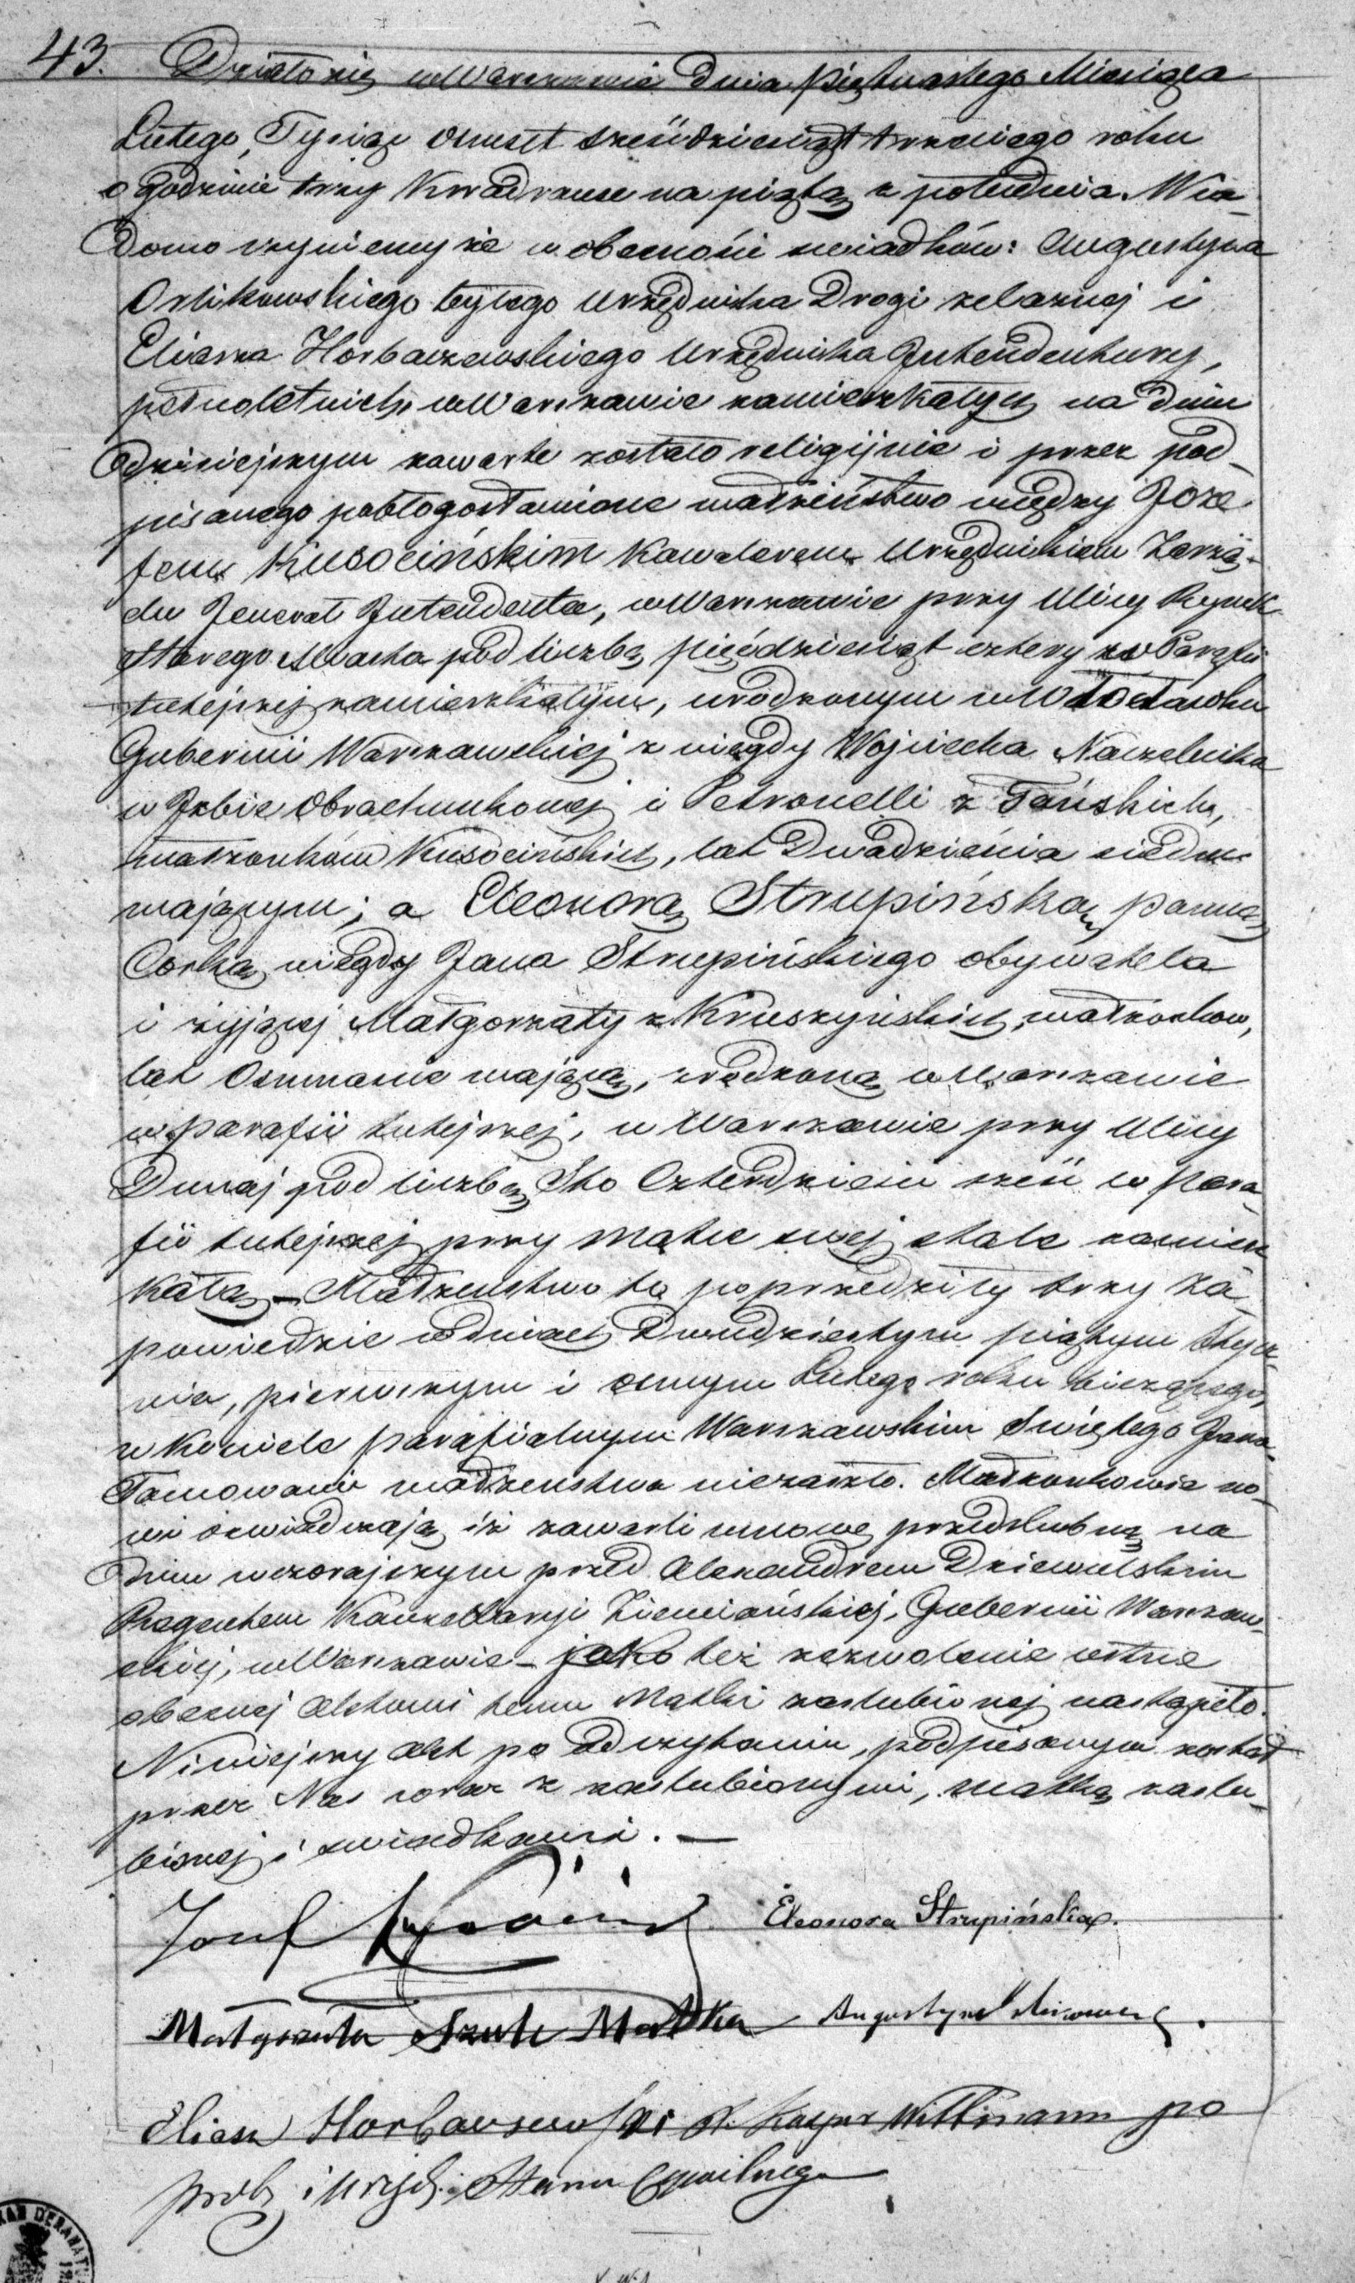 43. Działo się w Warszawie dnia piętnastego Miesiąca
Lutego, Tysiąc Osmset sześćdziesiąt trzeciego roku
o godzinie trzy kwadranse na piątą z południa. Wia-
domo czyniemy że w obecności świadków: Augustyna
Orlikowskiego byłego Urzędnika Drogi żelaznej i
Eliasza Horbaczewskiego Urzędnika Intendentury,
pełnoletnich w Warszawie zamieszkałych na dniu
dzisiejszym zawarte zostało religijnie i przez pod-
pisanego pobłogosławione małżeństwo między Joze-
fem Kusocińskim Kawalerem Urzędnikiem Zarzą-
du Jenerał Intendenta, w Warszawie przy Ulicy Rynek
Starego Miasta pod liczbą pięćdziesiąt cztery w Parafii
tutejszej zamieszkałym, urodzonym w
Gubernii Warszawskiej z niegdy Wojciecha Naczelnika
w Izbie Obrachunkowej i Petronelli z Tańskich,
małżonków Kusocińskich, lat Dwadzieścia siedm
mającym; a Eleonorą Strupińską panną
Corką niegdy Jana Strupińskiego obywatela
i żyjącej Małgorzaty z Kruszyńskich, małżonkow,
lat Osmnaście mającą, zrodzoną w Warszawie
w parafii tutejszej, w Warszawie przy Ulicy
Dunaj pod liczbą Sto Czterdzieści sześć w para-
fii tutejszej przy matce swej stale zamiesz
kałą – Małżeństwo to poprzedziły trzy za-
powiedzie w dniach Dwudziestym piątym Stycz-
nia, pierwszym i osmym Lutego roku bieżącego,
w Kościele parafialnym Warszawskim Świętego Jana.
Tamowanie małżeństwa niezaszło. Małżonkowie no-
wi oświadczają iż zawarli umowę przedślubną na
dniu wczorajszym przed Alexandrem Dziewulskim
Regentem Kancellaryi Ziemiańskiej, Gubernii Warszaw-
skiej, w Warszawie – jako też zezwolenie ustne
obecnej Aktowi temu Matki zaślubionej nastąpiło.
Niniejszy Akt po odczytaniu, podpisanym został
przez Nas wraz z zaślubionymi, matką zaślu-
bionej i świadkami. —
Jozef Kusociński Eleonora Strupińska.
Małgorzata Matka Augustyn
Eliasz Horbaczewski X. Kasper Wittmann po
prob. i Urzęd. Stanu Cywilnego